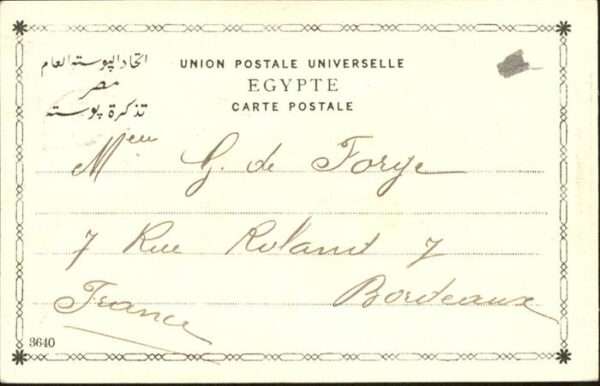 اتحاد البوسته العام
مصر
تذكرة بوسته
UNION POSTALE UNIVERSELLE
EGYPTE
CARTE POSTALE
G. de Forge
7 Rue Roland 7
Bordeaux
France
3640